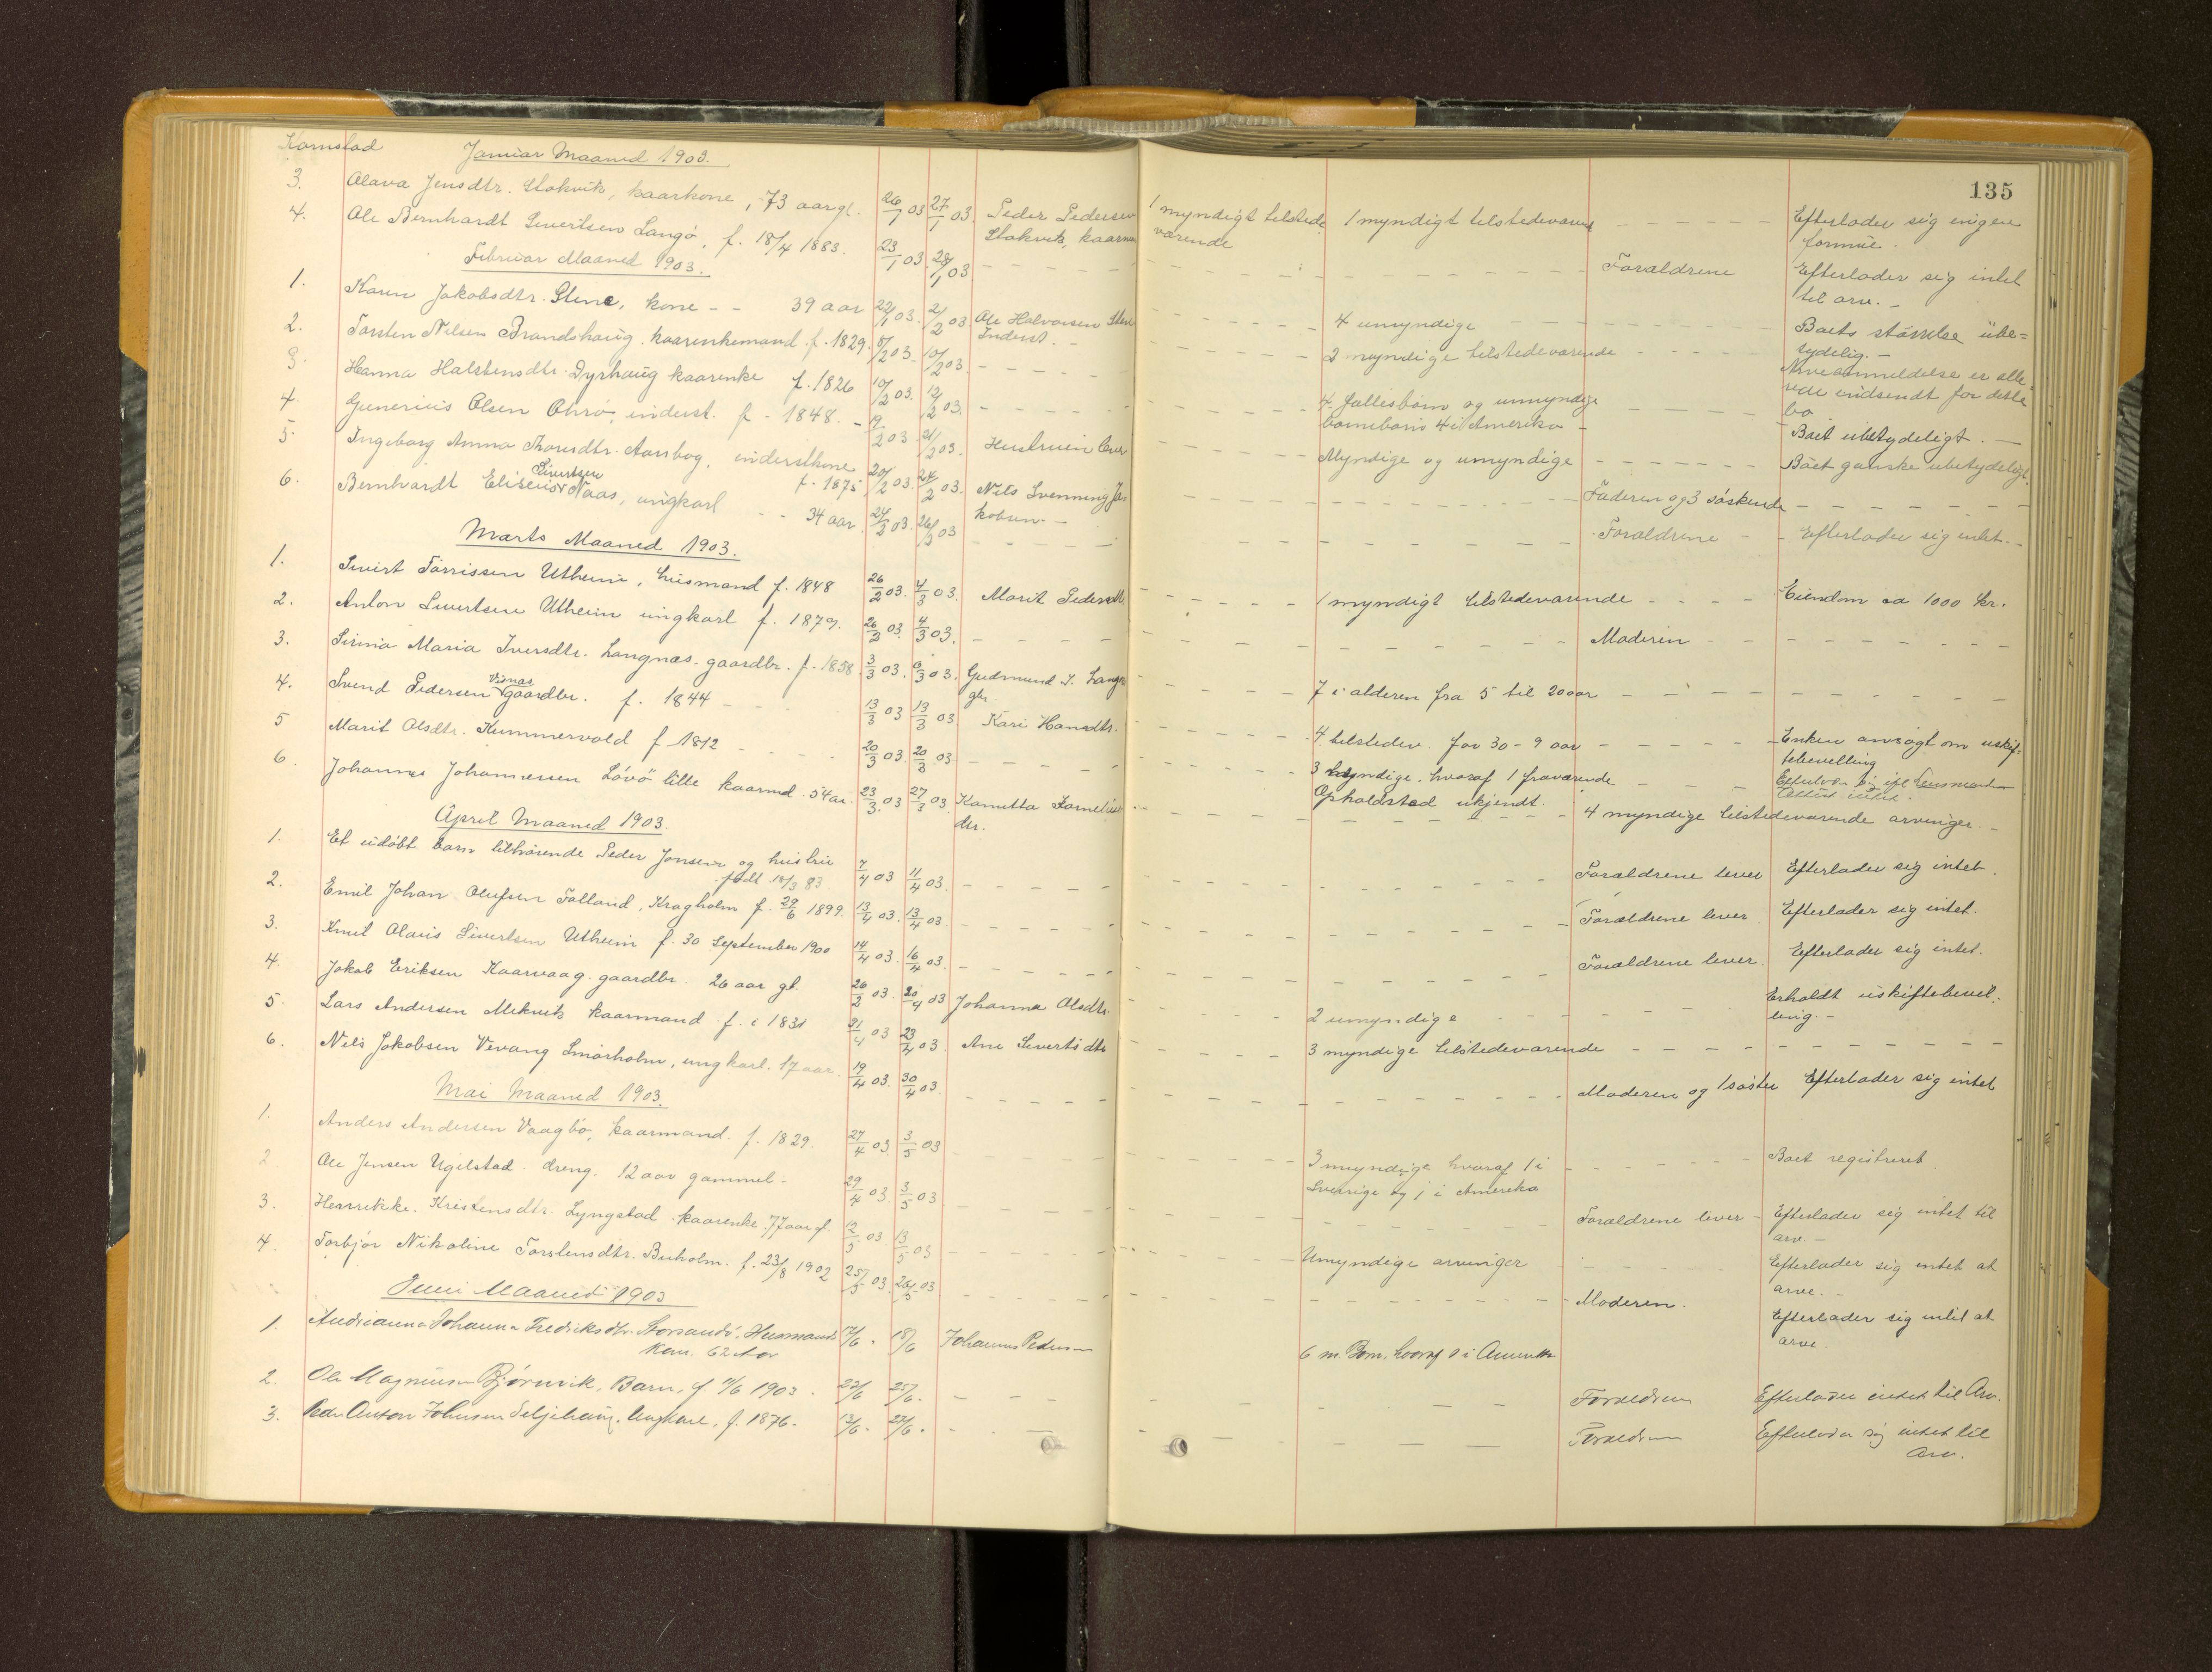 135
Kornstad Januar Maaned 1903.
3. Olava Jensdtr. Stokvik, kaarkone, 73 aar gl. 26/1 03 27/1 03. Peder Pedersen 1 myndigt tilstede 1 myndigt tilstedeværend - - - - Efterlader sig ingen
Stokvik, kaarma værende formue.
4. Ole Bernhardt Sivertsen Langö, f. 18/4 1883. 23/1 03 28/1 03 - - - - Forældrene Efterlader sig intet
til arv. -
Februar Maaned 1903.
1. Karen Jakobsdtr. Stene, kone - - 39 aar 22/1 03. 2/2 03 Ole Halvorsen Stene - - - 4 umyndige - - - Boets störrelse übe=
Inderst. - tydelig. -
2. Torsten Nilsen Brandshaug kaarenkemand f. 1829. 5/2 03 10/2 03. - - - 2 myndige tilstedeværende - - - Arveanmeldelse er alle=
rede indsendt for dette
bo
3. Hanna Halstensdtr. Dyrhaug kaarenke f. 1826 10/2 03. 12/2 03. - - - 4 fællesbörn og umyndige - - -
barnebarn 4 i Amerika - Boet ubetydeligt. -
4. Gunerius Olsen Ohrö, inderst. f. - 1848. - 19/2 03 21/2 03. Hustruen lever Myndige og umyndige - - - Böet ganske ubetydeligt.
5 Ingeborg Anna Thorsdtr. Aarsbog, inderstkone
f. 1875 20/2 03. 24/2 03. Nils Svenning Ja - - - Faderen og 3 söskende - - -
kobsen -
6. Bernhardt Eliseus Sivertsen Naas, ungkarl - - 34 aar 24/2 03. 26/2 03 - - - Forældrene - - Efterlader sig intet. -
Marts Maaned 1903.
1. Sivert Tarrissen Utheim, husmand f. 1848 26/2 03. 4/3 03. Marit Pedersdtr - - - 1 myndigt tilstedeværende - - - Eiendom ca 1000 kr.
2. Anton Sivertsen Utheim ungkarl f. 1879. 26/2 03. 4/3 03. - - - Moderen - - -
3. Sirina Maria Iversdtr. Langnæs. gaardbr. f. 1858 3/3 03. 6/3 03. Gudmund I. Langn - - - 7 i alderen fra 5 til 20 aar - - -
gbr.
4. Svend Pedersen Visnas gaardbr. f. 1844 - - - 13/3 03 13/3 03. Kari Hansdtr. - - - 4 tilstedev. for 30 - 9 aar - - - Enken ansögt om uskif=
tebevilling
5 Marit Olsdtr. Kummervold f 1812 - - - 20/3 03. 20/3 03 - - - 3 myndige, hvoraf 1 fraværende - - - Efterlader sig ifl Lensmanden
Opholdssted ukjendt. Attest intet.
6. Johannes Johannessen Lövö lille kaarmd. 54 ar. 23/3 03 27/3 03 Kanutta Kornelius - - - 4 myndige tilstedeværende arvinger. -
dtr.
April Maaned 1903.
1. Et udöbt barn tilhörende Peder Jonsen og hustru
födt 18/3 83 7/4 03 11/4 03. - - - Forældrene lever Efterlader sig intet.
2. Emil Johan Olufsen Folland, Kragholm f. 29/6 1899. 13/4 03. 13/4 03. - - - Forældrene lever Efterlader sig intet.
3. Knut Olaus Sivertsen Utheim f. 30 September 1900 14/4 03. 16/4 03. - - - Forældrene lever. Efterlader sig intet.
4. Jakob Eriksen Kaarvaag gaardbr. 26 aar gl. 26/2 03 20/4 03 Johanna Olsdtr - - - 2 umyndige - - - Erholdt uskiftebevil=
ling. -
5 Lars Andersen Mekvik kaarmand f. i 1831 21/4 03 23/4 03 Ane Sivertsdtr - - - 3 myndige tilstedeværende - - -
6. Nils Jakobsen Vevang Smörholm, ungkarl. 17 aar. 19/4 03. 30/4 03. - - - Moderen og 1 söster Efterlader sig intet
Mai Maaned 1903.
1. Anders Andersen Vaagbö, kaarmand. f. 1829. 27/4 03 3/5 03 - - - 3 myndige hvoraf 1 i - - - Boet registreret
Sverrige og 1 i Amerika
2 Ole Jensen Ugelstad. dreng. 12 aar gammel. - 29/4 03. 3/5 03 - - - Forældrene lever - Efterlader sig intet til
arv. -
3. Henrikke Kristensdtr. Lyngstad kaarenke 77 aar gl. 12/5 03 13/5 03 - - - Umyndige arvinger - - - Efterlader sig intet at
arve. -
4. Torbjör Nikoline Torstensdtr. Buholm. f. 23/8 1902 25/5 03 26/5 03 - - - Moderen. Efterlader sig intet at
arve.
Juni Maaned 1903
1. Andrianna Johanna Fredriksdtr. Storsandö, Husmands 17/6 - 18/6 Johannes Pedersen 6 m. Born, hvoraf 1 i Amerika
kone. 62 Aar
2. Ole Magnussen Björnvik, Barn, f. 7/6 1903. 22/6 25/6. - - - Forældrene Efterlader intet til Arv.
3. Peder Anton Johnsen Seljehaug. Ungkarl, f. 1876. 13/6. 27/6. - - - Forældrene Efterlader sig intet til
Arv.